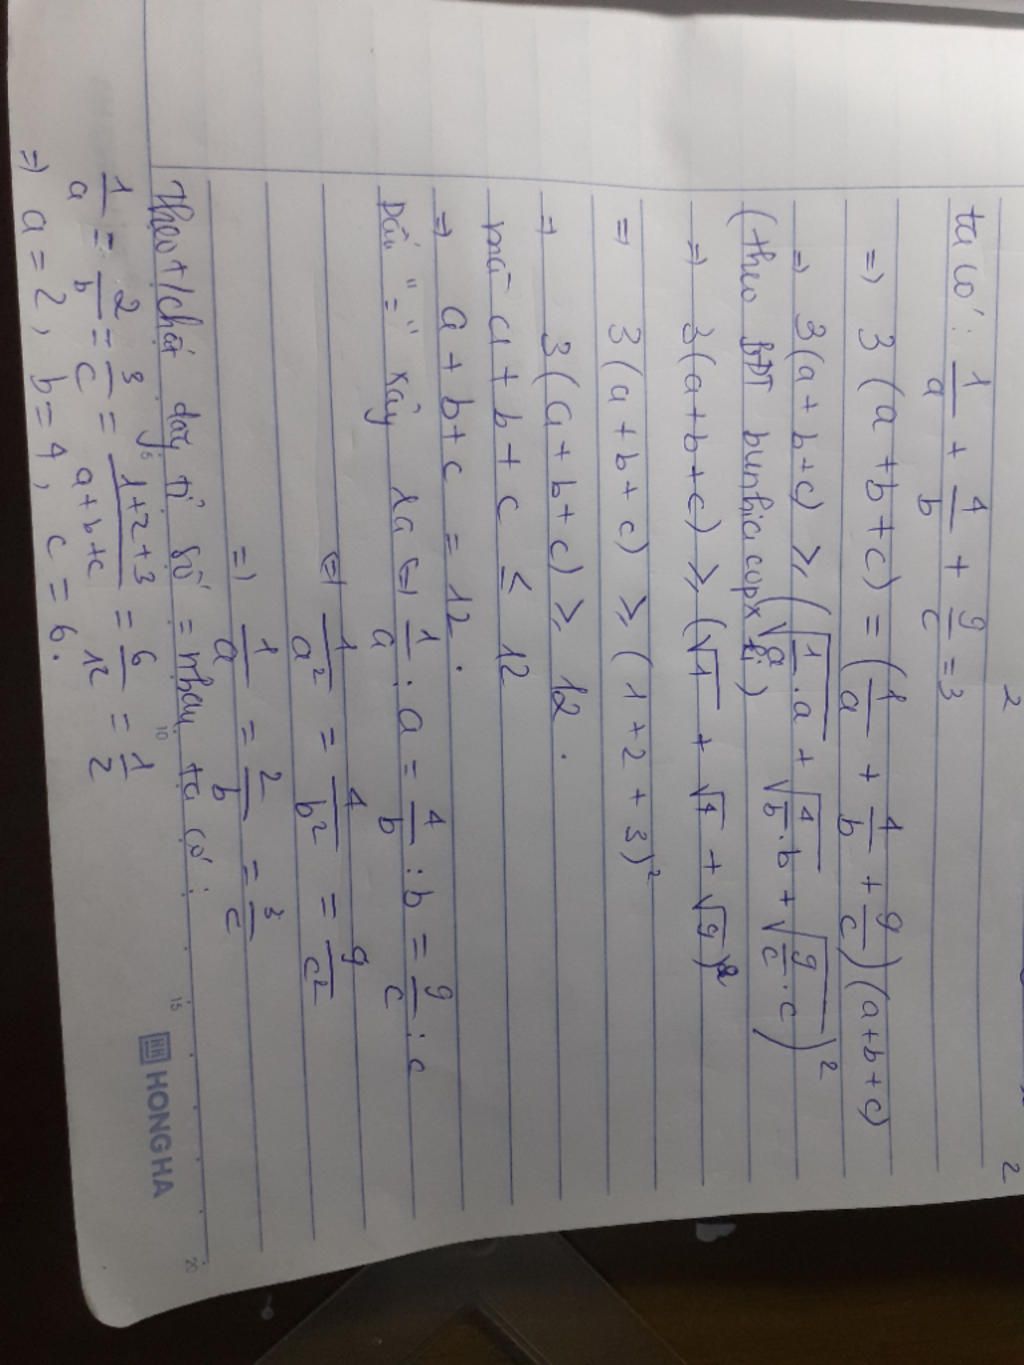 2 2
ta có: 1/a + 4/b + 9/c = 3
=> 3(a+b+c) = (1/a + 4/b + 9/c)(a+b+c)
=> 3(a+b+c) ≥ (√(1/a . a) + √(4/b . b) + √(9/c . c))²
(theo BĐT bunhiacopx ki)
=> 3(a+b+c) ≥ (√1 + √4 + √9)²
=> 3(a+b+c) ≥ (1+2+3)²
=> 3(a+b+c) ≥ 12.
mà a+b+c ≤ 12
=> a+b+c = 12.
Dấu "=" xảy ra <=> 1/a : a = 4/b : b = 9/c : c
<=> 1/a² = 4/b² = 9/c²
=> 1/a = 2/b = 3/c
Theo t/chất dãy tỉ số = nhau ta có:
1/a = 2/b = 3/c = (1+2+3)/(a+b+c) = 6/12 = 1/2
=> a = 2, b = 4, c = 6.
5 10 15 20
HONG HA